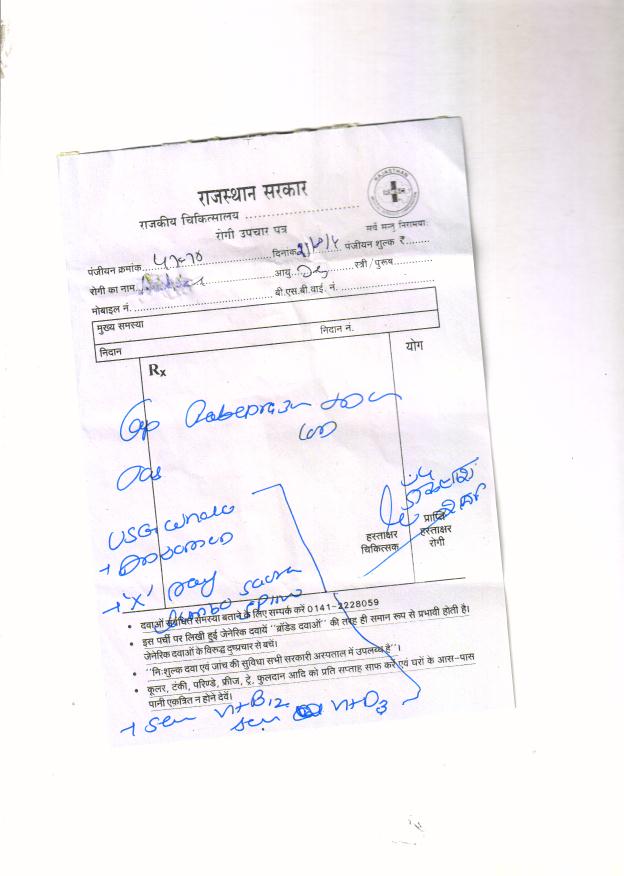 राजस्थान सरकार
राजकीय चिकित्सालय ........................
रोगी उपचार पत्र
सर्वे सन्तु निरामया
पंजीयन क्रमांक ........ दिनांक ........ पंजीयन शुल्क ₹ ........
रोगी का नाम ........ आयु ........ स्त्री/पुरूष ........
मोबाइल नं. ........ बी.एस.बी.वाई. नं. ........
मुख्य समस्या
निदान नं.
निदान
Rx
योग
Cap Rabeprazole
USG whole
Abdomen
→ 'X' ray
Lumbo sacra
spine
हस्ताक्षर
चिकित्सक
प्राप्ति
हस्ताक्षर
रोगी
• दवाओं संबंधित समस्या बताने के लिए सम्पर्क करें 0141-2228059
• इस पर्ची पर लिखी हुई जेनेरिक दवायें "ब्रांडेड दवाओं" की तरह ही समान रूप से प्रभावी होती है।
जेनेरिक दवाओं के विरुद्ध दुष्प्रचार से बचें।
• "निःशुल्क दवा एवं जांच की सुविधा सभी सरकारी अस्पताल में उपलब्ध है"।
• कूलर, टंकी, परिण्डे, फ्रीज, ट्रे, फुलदान आदि को प्रति सप्ताह साफ करें एवं घरों के आस-पास
पानी एकत्रित न होने देवें।
→ Ser Vit B12
Ser Vit D3